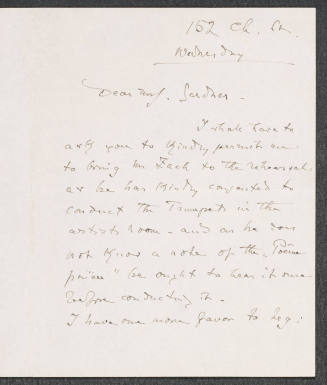 152 Ch. St.
Wednesday
Dear Mrs. Gardner -
I shall have to
ask you to kindly permit me
to bring Mr Zach to the rehearsal,
as he has kindly consented to
conduct the Trumpets in the
artists room - and as he does
not know a note of the "Poème
païen" he ought to hear it once
before conducting it -
I have one more favor to beg: